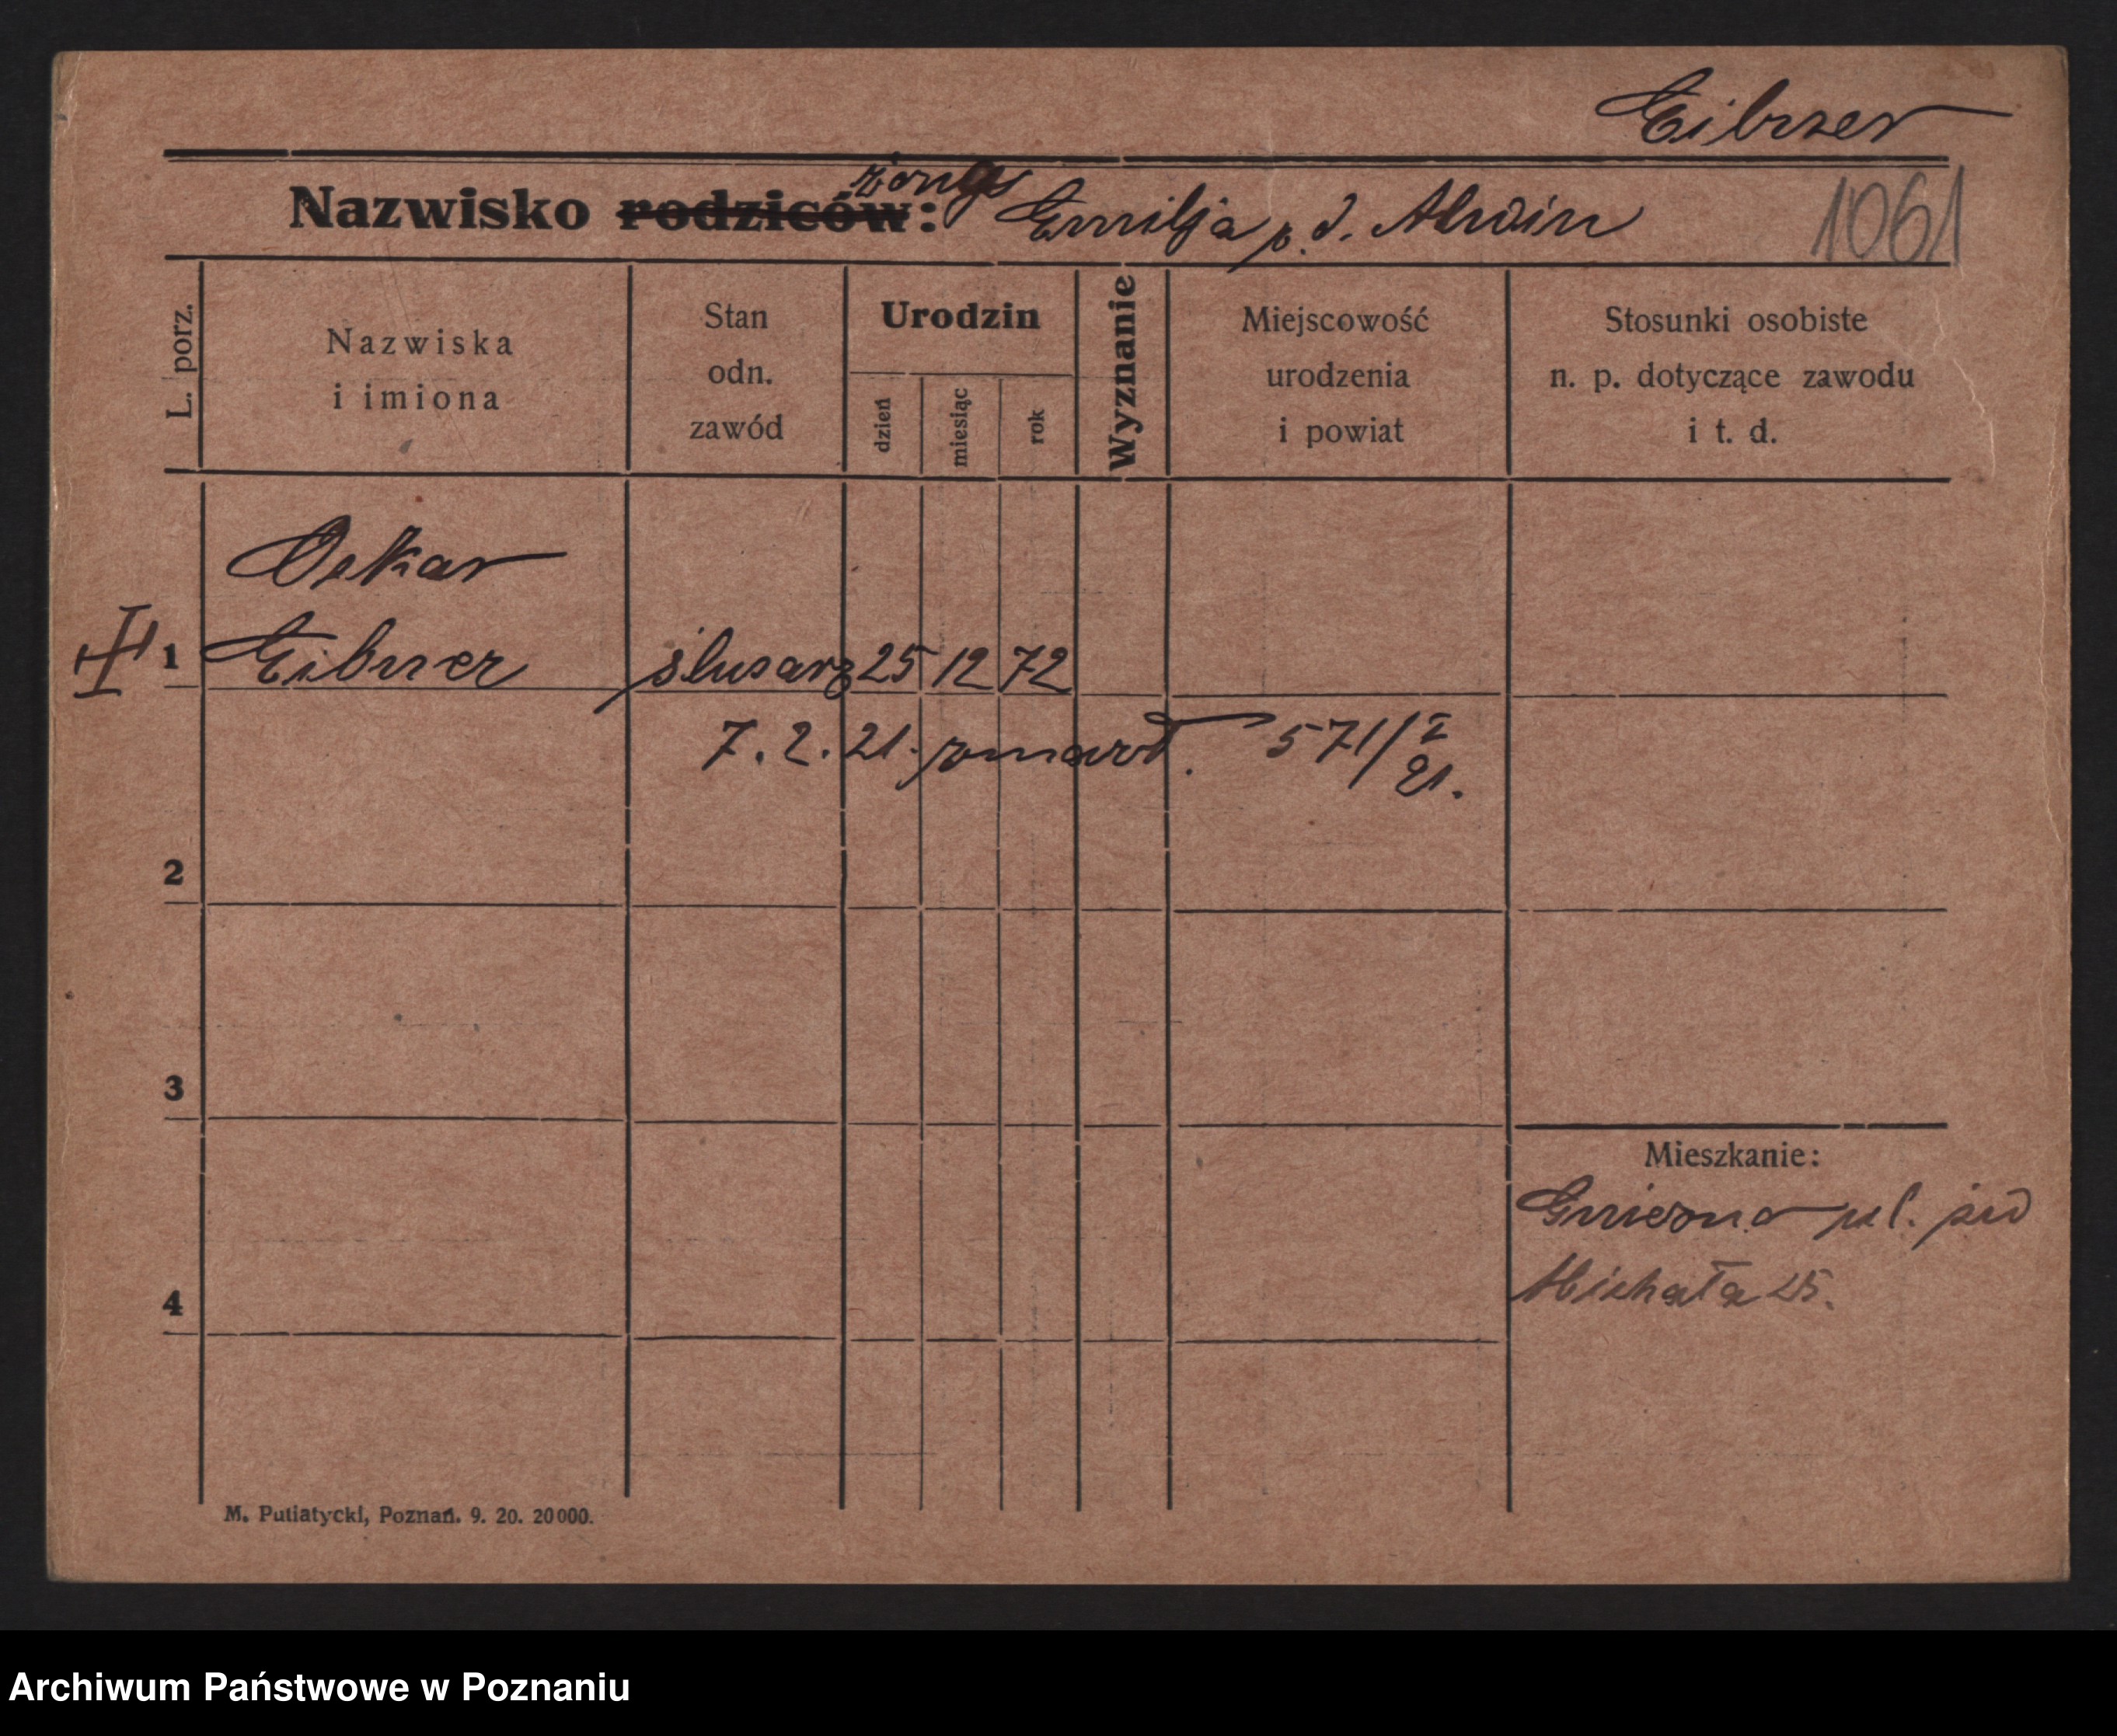 Eibner
Nazwisko rodziców: żony Emilja p. d. Alwin
1061
L. porz.
Nazwiska
i imiona
Stan
odn.
zawód
Urodzin
dzień
miesiąc
rok
Wyznanie
Miejscowość
urodzenia
i powiat
Stosunki osobiste
n. p. dotyczące zawodu
i t. d.
Oskar
1 Eibner ślusarz 25 12 72
7. 2. 21. zmarł. 571/I
21.
2
3
Mieszkanie:
Gniezno pl. św
Michała 25.
4
M. Putiatycki, Poznań. 9. 20. 20000.
Archiwum Państwowe w Poznaniu